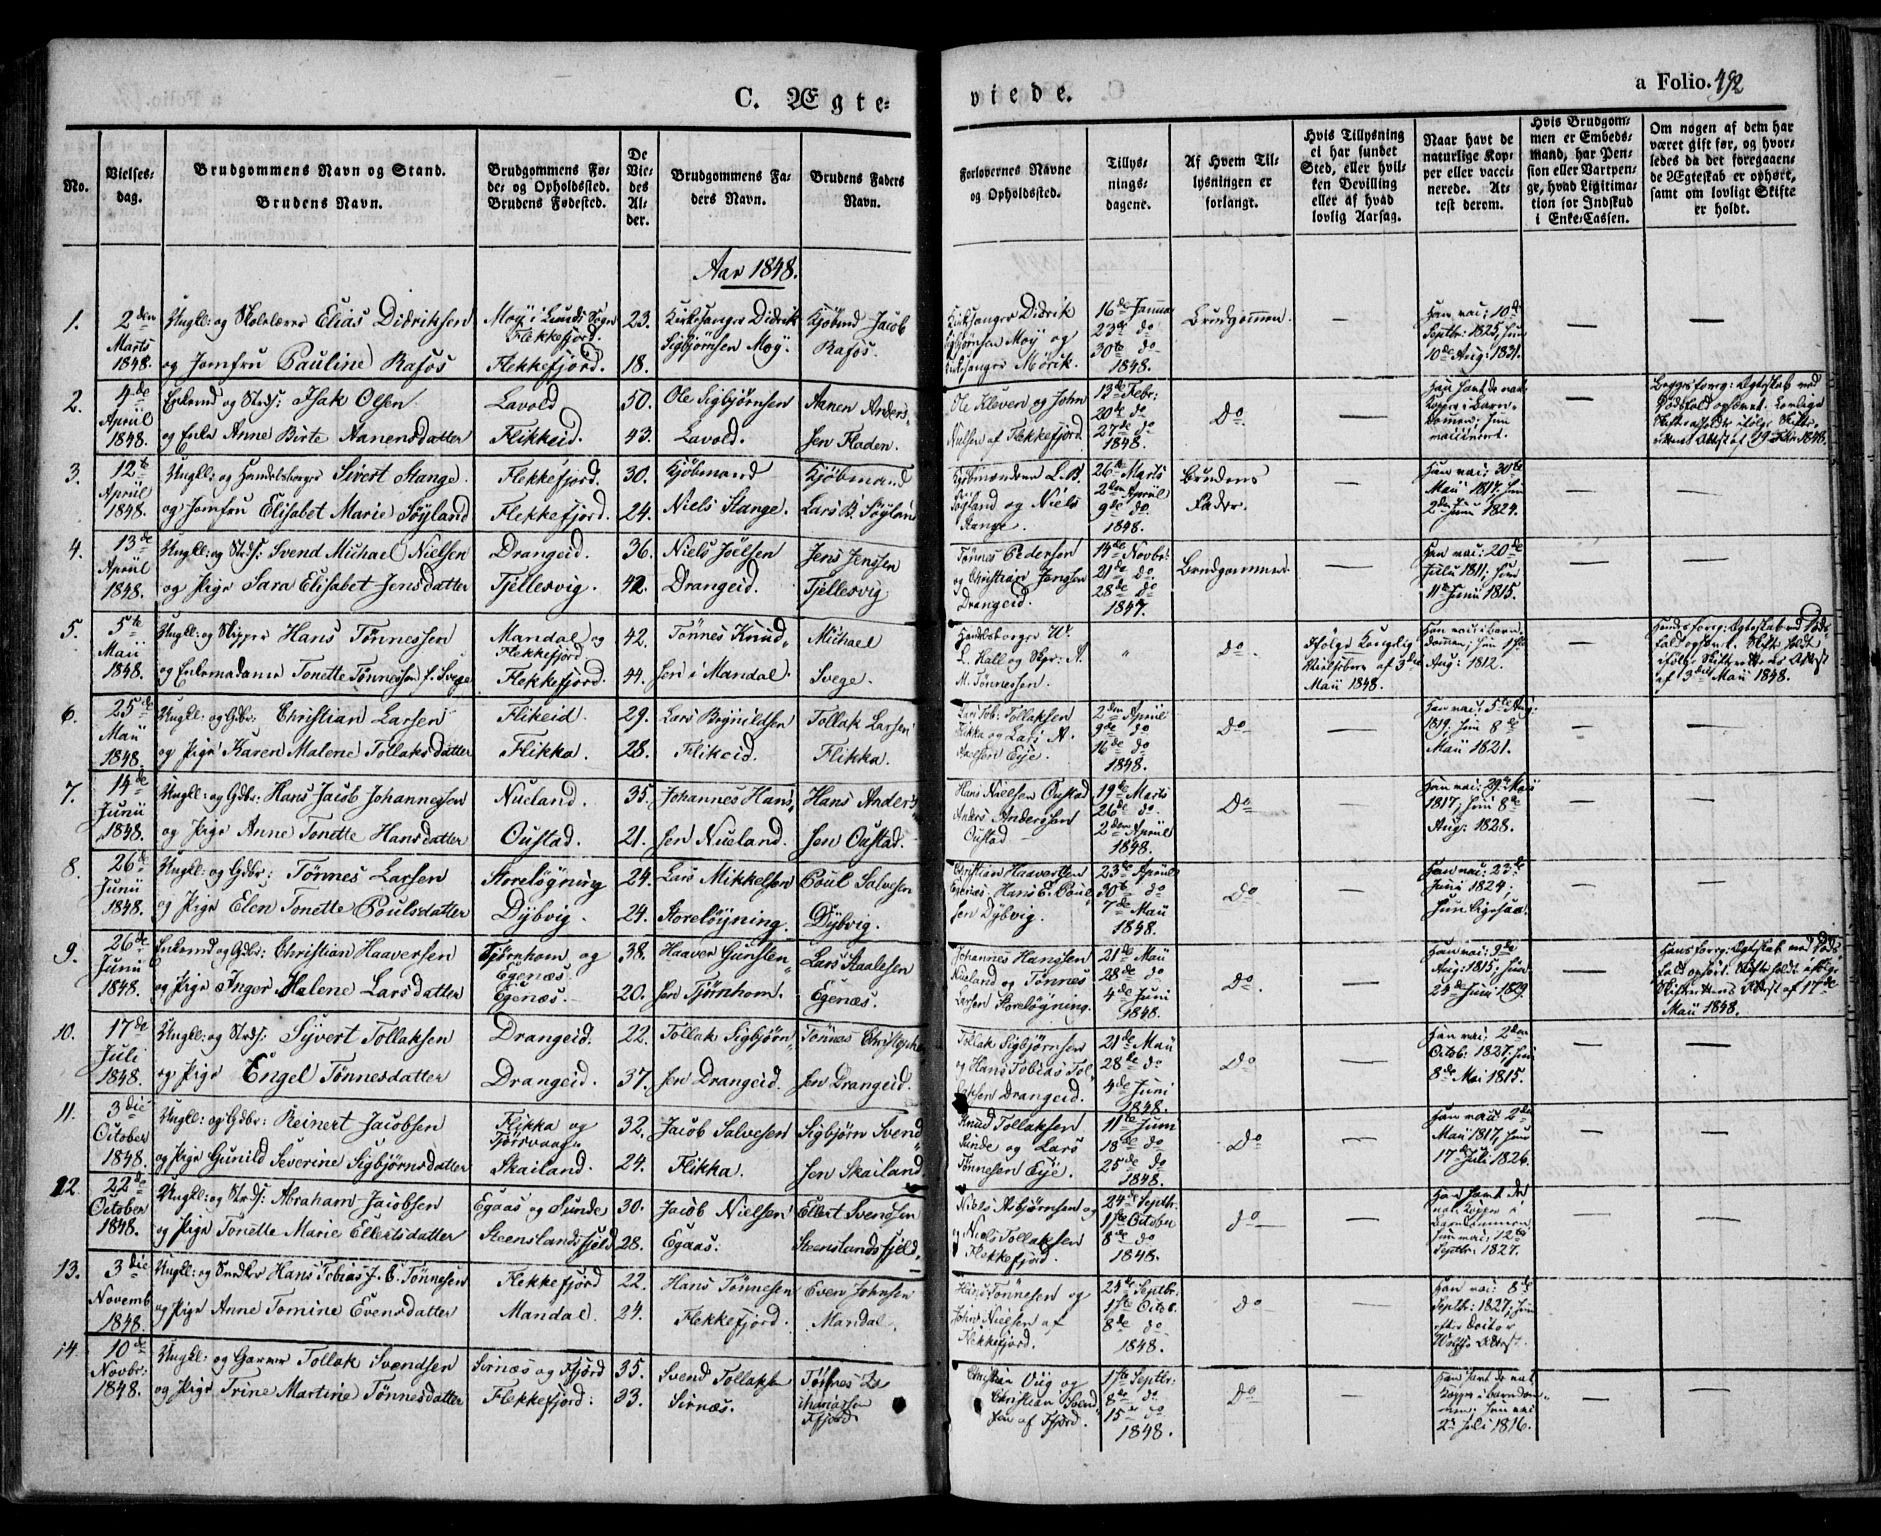 C. Ægte-
viede.
a Folio. 492
No.
Vielses-
dag.
Brudgommens Navn og Stand.
Brudens Navn.
Brudgommens Fø-
de- og Opholdssted.
Brudens Fødested.
De
Vie-
des
Al-
der.
Brudgommens Fa-
ders Navn.
Brudens Faders
Navn.
Forlovernes Navne
og Opholdssted.
Tillys-
nings-
dagene.
Af Hvem Til-
lysningen er
forlangt.
Hvis Tillysning
ei har fundet
Sted, eller hvil-
ken Bevilling
eller af hvad
lovlig Aarsag.
Naar havt de
naturlige Kop-
per eller vacci-
nerede. At-
test derom.
Hvis Brudgom-
men er Embeds-
mand, har Pen-
sion eller Vartpen-
ge, hvad Legitima-
tion for Indskud
i Enke-Cassen.
Om nogen af dem har
været gift før, og hvor-
ledes da det foregaaen-
de Ægteskab er ophørt,
samt om lovligt Skifte
er holdt.
Aar 1848.
1.
2den
Marts
1848.
Ungkl: og Skolelærer Elias Didriksen
og Jomfru Pauline Rafos
Moÿ i Lunds Sogn
Flekkefjord.
Flekkefjord.
23.
18.
Kirkesanger Didrik
Sigbjørnsen Moÿ.
Kjøbmd Jacob
Rafos.
Kirkesanger Didrik
Sigbjørnsen Moÿ og
Kirkesanger Mörik.
16de Januar
23de do
30te do
1848.
Brudgommen.
—
Han vac: 10de
Septbr: 1825, hun
10de Aug: 1831.
—
—
2.
4de
April
1848.
Enkemd og Strds: Isak Olsen
og Enke Anne Birte Aanensdatter
Lavold
Flikkeid.
50.
43.
Ole Sigbjørnsen
Lavold.
Aanen Anders-
sen Fladen.
Ole Kleven og John
Nielsen af Flekkefjord
13de Febr:
20de do
27de do
1848.
Do
—
Han havt de nat:
Kopper i Barn-
dommen; hun
vaccineret.
—
Begges foreg: Ægteskab ved
Dødsfald ophævet. Lovlige
1848.
3.
12te
April
1848.
Ungkl: og Handelsborger Sivert Stange.
og Jomfru Elisabet Marie Søyland
Flekkefjord.
Flekkefjord.
30.
24.
Kjøbmand
Niels Stange.
Kjøbmand
Lars B. Søyland
Kjøbmændene L. B.
Søyland og Niels
Stange.
26de Marts
2den April
9de do
1848.
Brudens
Fader.
—
Han vac: 30te
Maii 1817, hun
2den Juni 1824.
—
—
4.
13de
April
1848.
Ungkl: og Strds: Svend Michael Nielsen
og Pige Sara Elisabet Jensdatter
Drangeid.
Tjellesvig.
36.
42.
Niels Joelsen
Drangeid.
Jens Jenssen
Tjellesvig
Tønnes Pedersen
og Christian Jenssen
Drangeid.
14de Novbr:
21de do
28de do
1847.
Brudgommen.
—
Han vac: 20de
Julii 1811; hun
11te Junii 1815.
—
—
5.
5te
Maii
1848.
Ungkl: og Skipper Hans Tønnessen
og Enkemadame Tonette Tønnessen f. Svege
Mandal og
Flekkefjord
Flekkefjord.
42.
44.
Tønnes Knud-
sen i Mandal.
Michael
Svege.
L. Hall og Skpr: A.
M. Tønnessen.
"
Do
Ifølge Kongelig
af 3die
Maii 1848.
Aug: 1812.
—
Hendes foreg: Ægteskab ved Døds-
fald ophævet. Skifte holdt
ifølge Skifterettens Attest
af 3die Maii 1848.
6.
25de
Maii
1848.
Ungkl: og Gdbr: Christian Larsen
og Pige Karen Malene Tollaksdatter
Flikeid.
Flikka.
29.
28.
Lars Brynildsen
Flikeid.
Tollak Larsen
Flikka.
Lars Tob: Tollaksen
Flikka og Lars A.
Axelsen Eÿe.
2den April
9de do
16de do
1848.
Do
—
Han vac: 5te Aug:
1819, hun 8de
Maii 1821.
—
—
7.
14de
Junii
1848.
Ungkl: og Gdbr: Hans Jacob Johannessen
og Pige Anne Tonette Hansdatter
Nueland.
Oustad.
35.
21.
Johannes Hans-
sen Nueland.
Hans Anders-
sen Oustad.
Hans Nielsen Oustad
Anders Anderssen
Oustad
19de Marts
26de do
2den April
1848.
Do
—
Han vac: 29de Maii
1817; hun 8de
Aug: 1828.
—
—
8.
26de
Junii
1848.
Ungkl: og Gdbr: Tønnes Larsen
og Pige Elen Tonette Poulsdatter
Storeløgning
Dÿbvig.
24.
24.
Lars Mikkelsen
Storeløgning.
Poul Salvesen
Dÿbvig.
Christian Haaversen
Egenæs. Hans E. Poul-
sen Dÿbvig.
23de April
30te do
7de Maii
1848.
Do
—
Han vac: 23de
Juni 1824;
hun ligesaa.
—
—
9.
26de
Junii
1848.
Enkemd og Gdbr: Christian Haaversen
og Pige Inger Malene Larsdatter
Tjørnhom og
Egenæs.
Egenæs.
38.
20.
Haaver Gunsten-
sen Tjørnhom.
Lars Staalesen
Egenæs.
Johannes Hanssen
Nueland og Tønnes
Larsen Storeløgning.
21de Maii
28de do
4de Juni
1848.
Do
—
Han vac: 9de
Aug: 1815; hun
24de Juni 1829.
—
Hans foreg: Ægteskab ved Døds-
fald ophørt. Skifte holdt ifølge
Skifterettens Attest af 17de
Maii 1848.
10.
17de
Juli
1848.
Ungkl: og Strds: Sÿvert Tollaksen
og Pige Engel Tønnesdatter
Drangeid.
Drangeid.
22.
37.
Tollak Sigbjørn-
sen Drangeid.
Tønnes Christophers-
sen Drangeid.
Tollak Sigbjørnsen
og Hans Tobias Tol-
laksen Drangeid.
21de Maii
28de do
4de Juni
1848.
Do
—
Han vac: 2den
Octob: 1827; hun
8de Mai 1815.
—
—
11.
3die
October
1848.
Ungkl: og Gdbr: Reinert Jacobsen
og Pige Gunild Severine Sigbjørnsdatter
Flikka og
Tjørsvaag.
Skailand.
32.
24.
Jacob Salvesen
Flikka.
Sigbjørn Svend-
sen Skailand.
Knud Tollaksen
Sunde og Lars
Tønnesen Eÿe.
11te Juni
18de do
25de do
1848.
Do
—
Han vac: 2den
Maii 1817, hun
17de Juli 1826.
—
—
12
22de
October
1848.
Ungkl: og Strds: Abraham Jacobsen
og Pige Tonette Marie Ellertsdatter
Egaas og Sunde
Steenslandsfjeld
30.
28.
Jacob Nielsen
Egaas.
Ellert Svensen
Steenslandsfjeld.
Niels Asbjørnsen og
Niels Tollaksen
Flekkefjord.
24de Septbr:
1ste October
8de do
1848.
do
—
Han havt de
nat: Kopper i
Barndommen
hun vac: 12te
Septbr: 1827.
—
—
13.
3die
Novemb
1848.
Ungkl: og Snedker Hans Tobias J. C. Tønnesen
og Pige Anne Tomine Evensdatter
Flekkefjord
Mandal.
22.
24.
Hans Tønnesen
Flekkefjord.
Even Johnsen
Mandal.
Hans Tønnesen og
John Nielsen af
Flekkefjord.
25de Septbr:
1ste Octob.
8de do
1848.
Do
—
Han vac: 8de
Septbr: 1827, hun
efter Doctor
Wolffs Attest.
—
—
14
10de
Novbr:
1848.
Ungkl: og Garver Tollak Svendsen
og Pige Trine Martine Tønnesdatter
Sirnæs og Fjord
Flekkefjord:
35.
33.
Svend Tollaksen
Sirnæs.
Tønnes Za-
chariassen
Fjord
Christian Viig og
Christian Svend-
sen af Fjord.
1ste Septbr:
8de do
15de do
1848.
Do
—
Han havt de nat
Kopper i Barndom-
men; hun vac
2den Juli 1816.
—
—